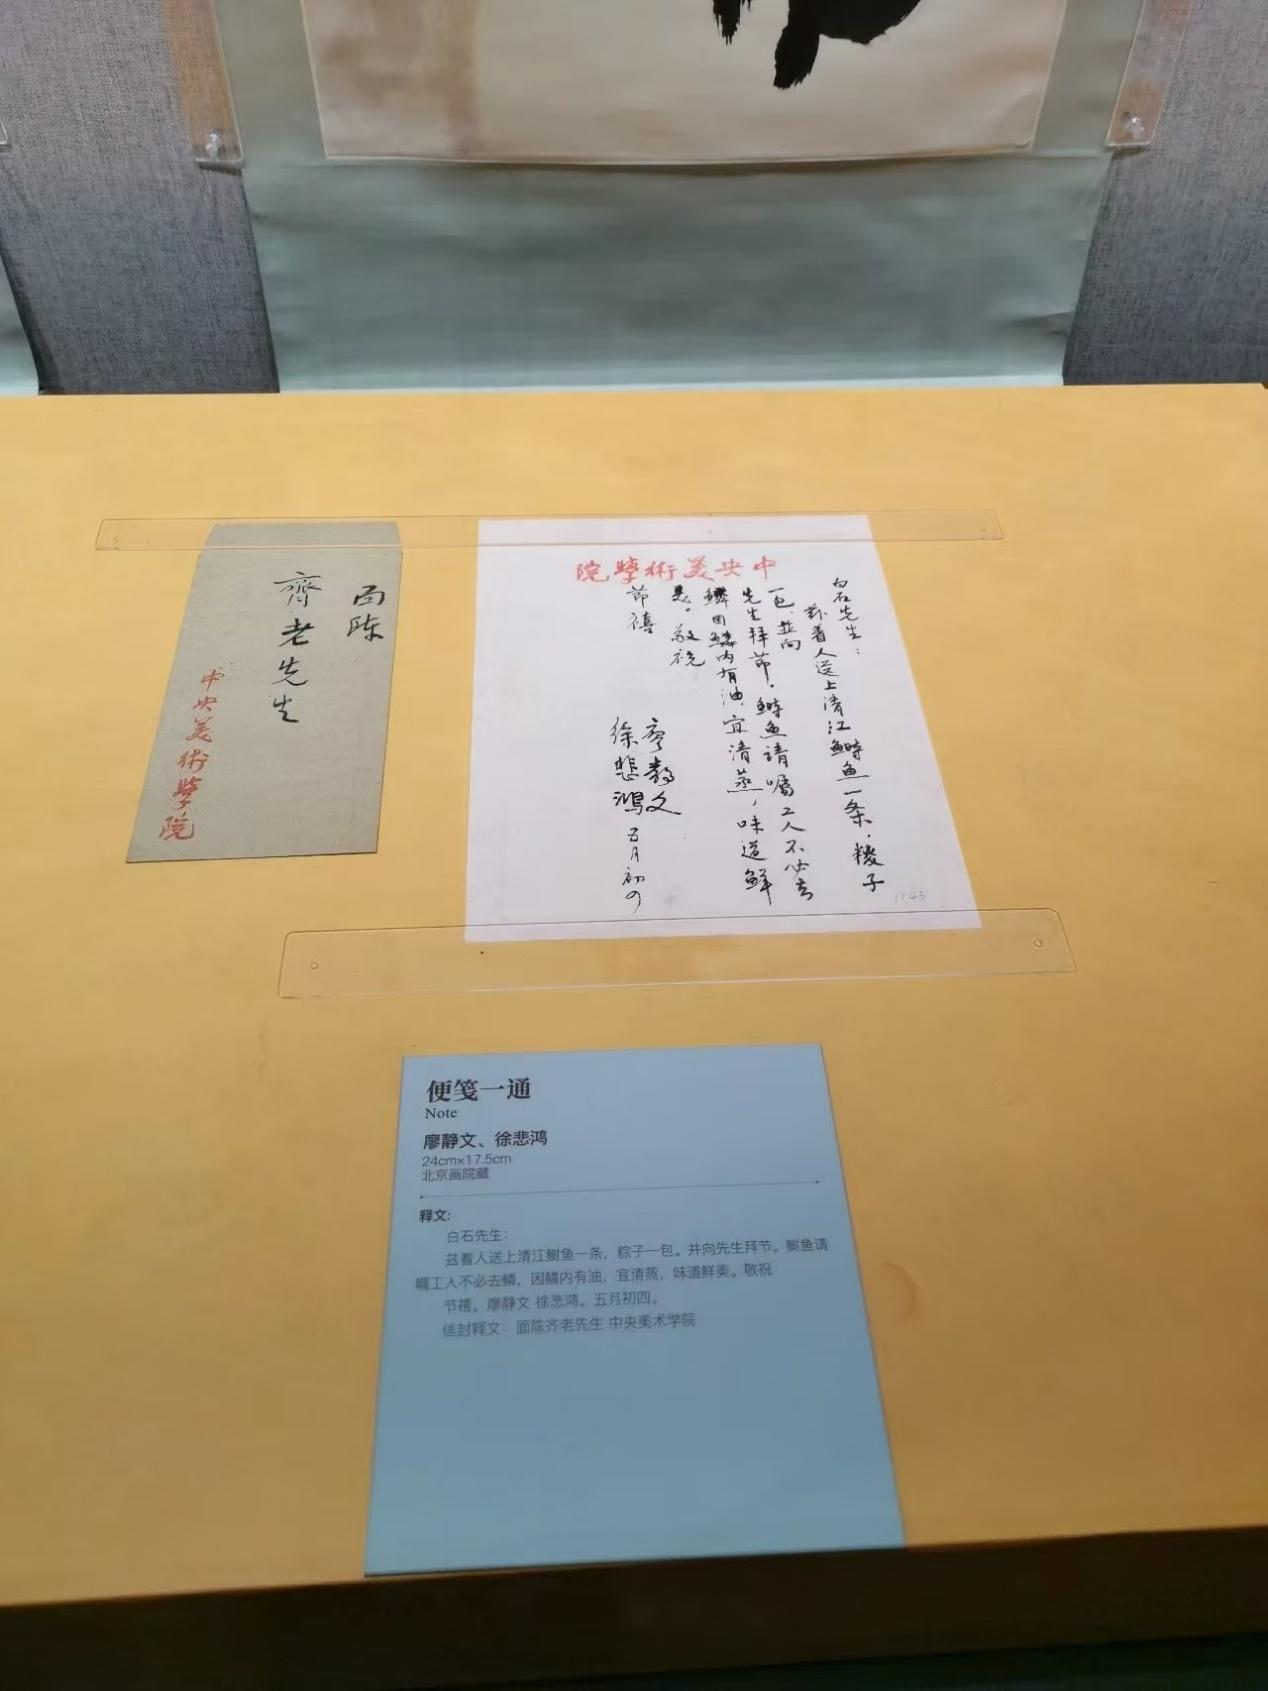 面陈
齊老先生
中央美術學院
中央美術學院
白石先生：
兹着人送上清江鲥鱼一条，糉子
一包，並向
先生拜节。鲥鱼请嘱工人不必去
鳞因鳞内有油，宜清蒸，味道鲜
美。敬祝
节禧
廖静文
徐悲鸿 五月初四
便笺一通
Note
廖静文、徐悲鸿
24cm×17.5cm
北京画院藏
释文:
白石先生：
兹着人送上清江鲥鱼一条，粽子一包。并向先生拜节。鲥鱼请
嘱工人不必去鳞，因鳞内有油，宜清蒸，味道鲜美。敬祝
节禧。廖静文 徐悲鸿。五月初四。
信封释文：面陈齐老先生 中央美术学院